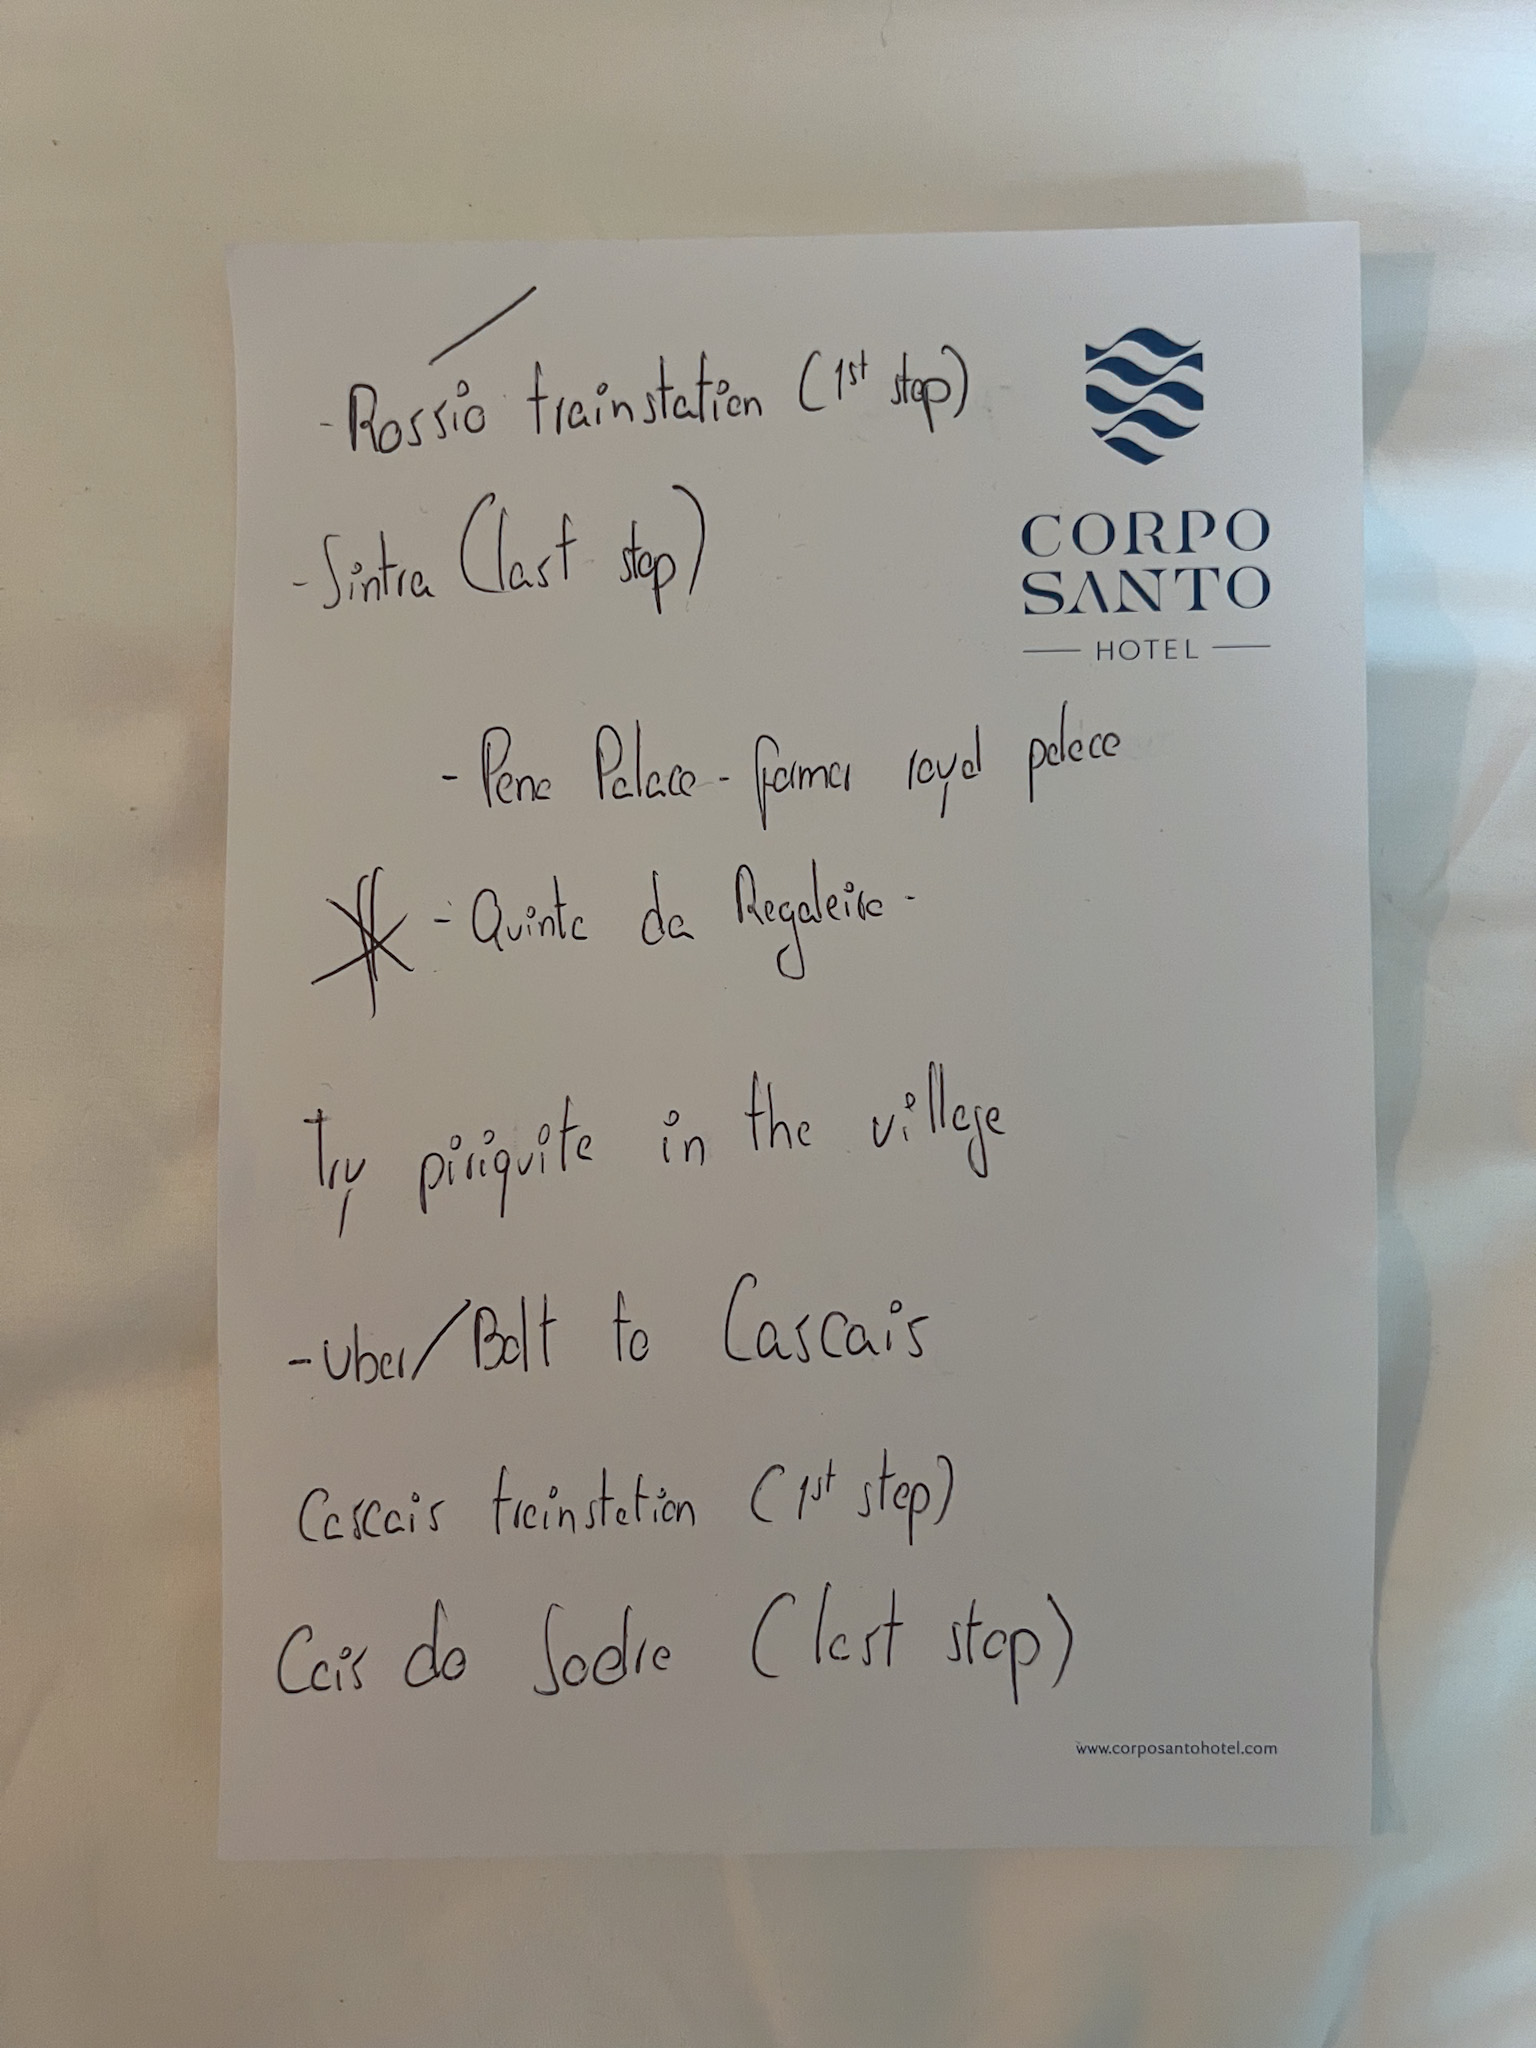 - Rossio trainstation (1st stop)
- Sintra (last stop)
CORPO
SANTO
HOTEL
- Pena Palace - former royal palace
- Quinta da Regaleira -
Try piriquita in the village
- Uber/Bolt to Cascais
Cascais trainstation (1st stop)
Cais do Sodre (last stop)
www.corposantohotel.com